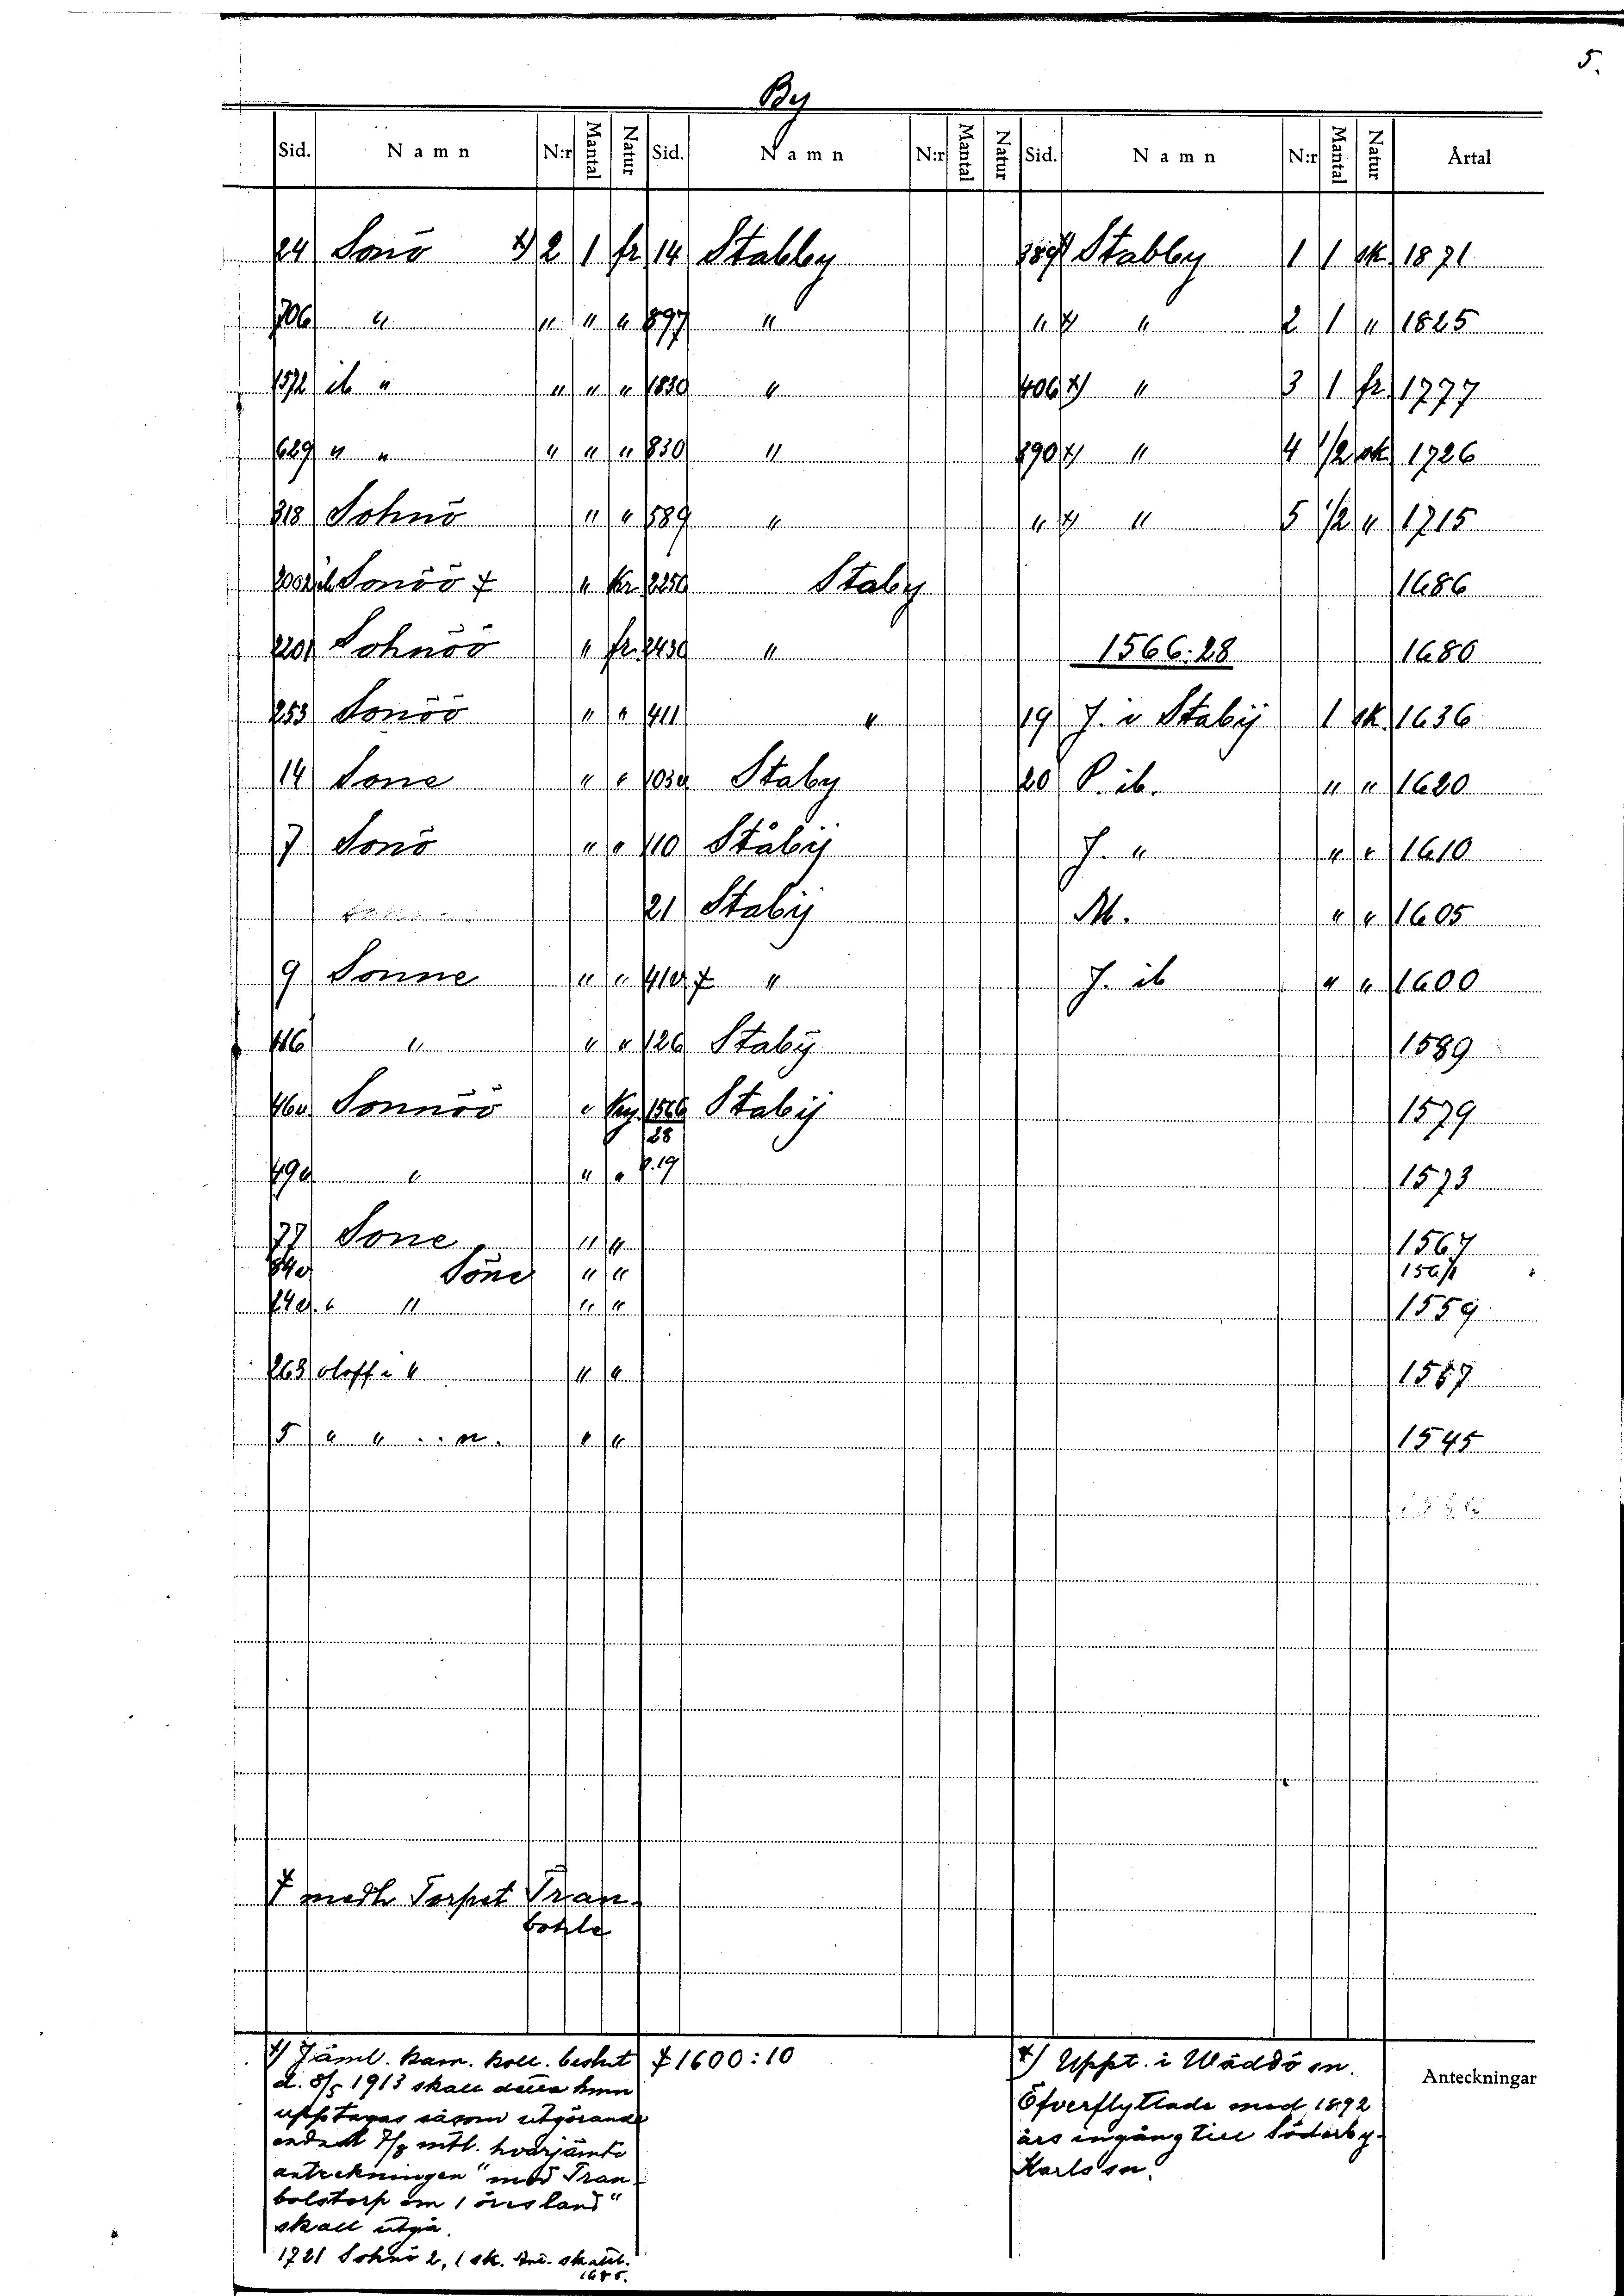 5.
By
Sid. Namn N:r Mantal Natur Sid. Namn N:r Mantal Natur Sid. Namn N:r Mantal Natur Årtal
24 Sonö x) 2 1 fr 14 Stabby 389 x) Stabby 1 1 sk. 1871
706 " " " " 897 " " x) " 2 1 " 1825
1572 ib " " " " 1830 " 406 x) " 3 1 fr. 1777
629 " " " " " 830 " 390 x) " 4 1/2 sk. 1726
318 Sohnö " " 589 " " x) " 5 1/2 " 1715
2002 ib Sonöö ‡ " Kr. 2250 Staby 1686
2201 Sohnöö " fr. 2430 " 1566:28 1680
253 Sonöö " " 411 " 19 J. i Stabÿ 1 sk. 1636
14 Sone " " 1030 Staby 20 P. ib. " " 1620
7 Sonö " " 110 Ståbÿ J. " " " 1610
21 Stabÿ M. " " 1605
9 Sonne " " 41 ‡ " J. ib " " 1600
116 " " " 126 Stabÿ 1589
46 Sonnöö " Ky. 1566 Stabÿ 1579
28
49 " " " p. 19 1573
77 Sone " " 1567
Söne " " 1564
" " " 1559
263 oloff i " " " 1557
5 " " " " 1545
‡ medh Torpet Tran-
bohle
x) Jäml. kam. koll. beslut
d. 8/5 1913 skall detta hmn
upptagas såsom utgörande
endast 7/8 mtl. hvarjämte
anteckningen "med Tran-
bolstorp om 1 öresland"
skall utgå.
1721 Sohnö 2, 1 sk.
1685.
‡ 1600:10
x) Uppt. i Wäddö sn.
Öfverflyttade med 1892
års ingång till Söderby-
Karls sn.
Anteckningar